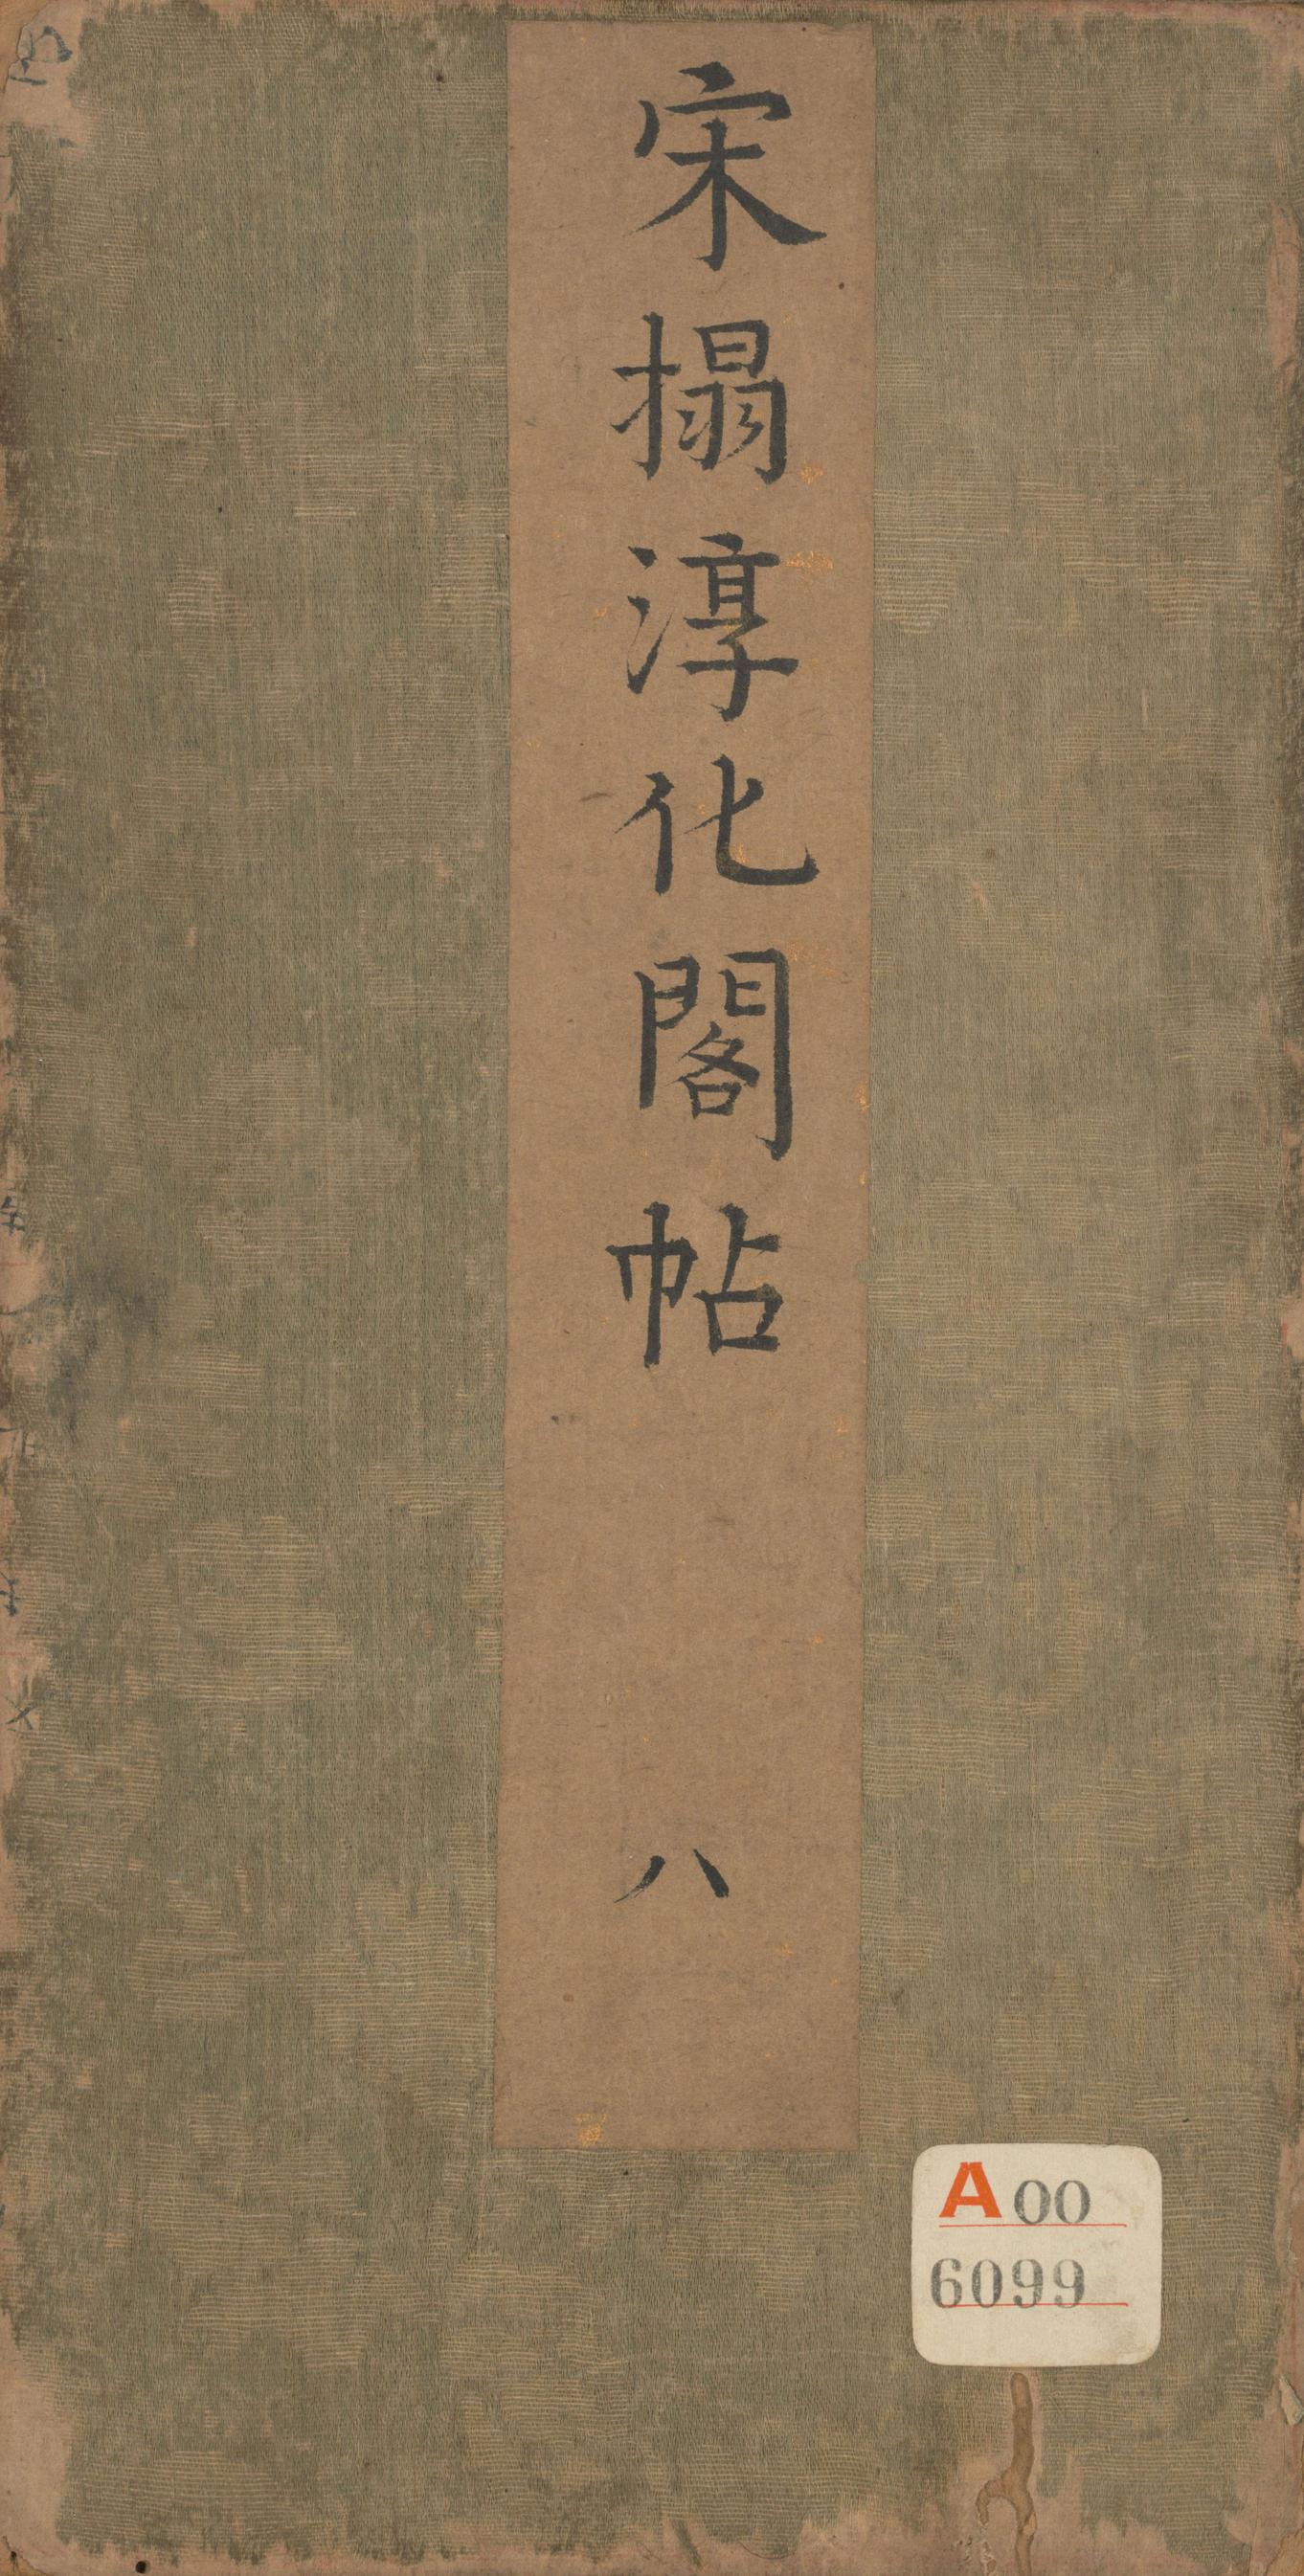 宋搨淳化閣帖
八
A00
6099